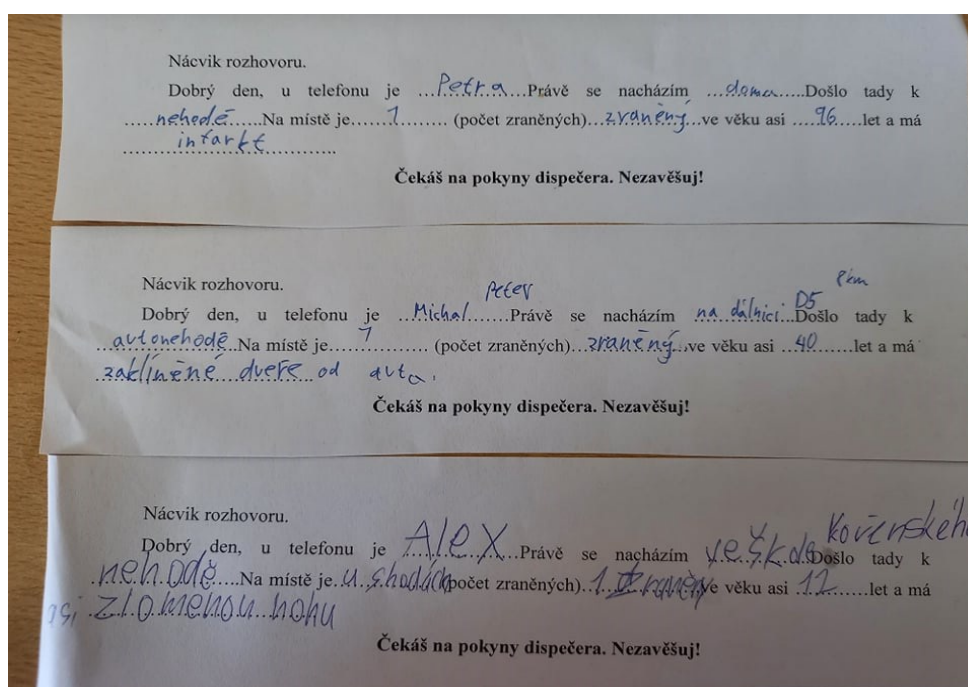 Nácvik rozhovoru.
Dobrý den, u telefonu je ...Petra...Právě se nacházím ...doma.....Došlo tady k
.....nehodě.....Na místě je.....1........ (počet zraněných)...zraněný...ve věku asi ....96.....let a má
infarkt
Čekáš na pokyny dispečera. Nezavěšuj!
Nácvik rozhovoru.
Peter
8km
Dobrý den, u telefonu je ...Michal.......Právě se nacházím ...na dálnici D5...Došlo tady k
...autonehodě..Na místě je.....1........ (počet zraněných)...zraněný...ve věku asi ...40......let a má
zaklíněné dveře od auta.
Čekáš na pokyny dispečera. Nezavěšuj!
Nácvik rozhovoru.
Dobrý den, u telefonu je ...Alex...Právě se nacházím ve škole Kořenského Došlo tady k
.nehodě....Na místě je.u schodách(počet zraněných)...1 zraněný ve věku asi ...12.....let a má
asi zlomenou nohu
Čekáš na pokyny dispečera. Nezavěšuj!